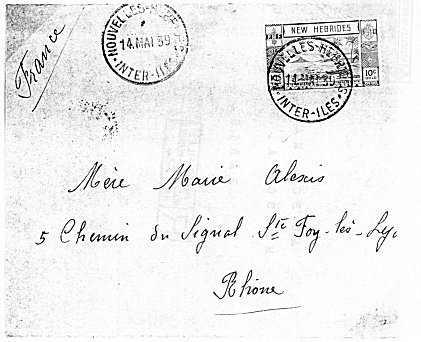 France
NOUVELLES-HEBRIDES
14.MAI 39
INTER-ILES
NEW HEBRIDES
10c
NOUVELLES-HEBRIDES
14.MAI 39
INTER-ILES
Mère Marie Alexis
5 Chemin du Signal Ste Foy-lès-Ly
Rhône